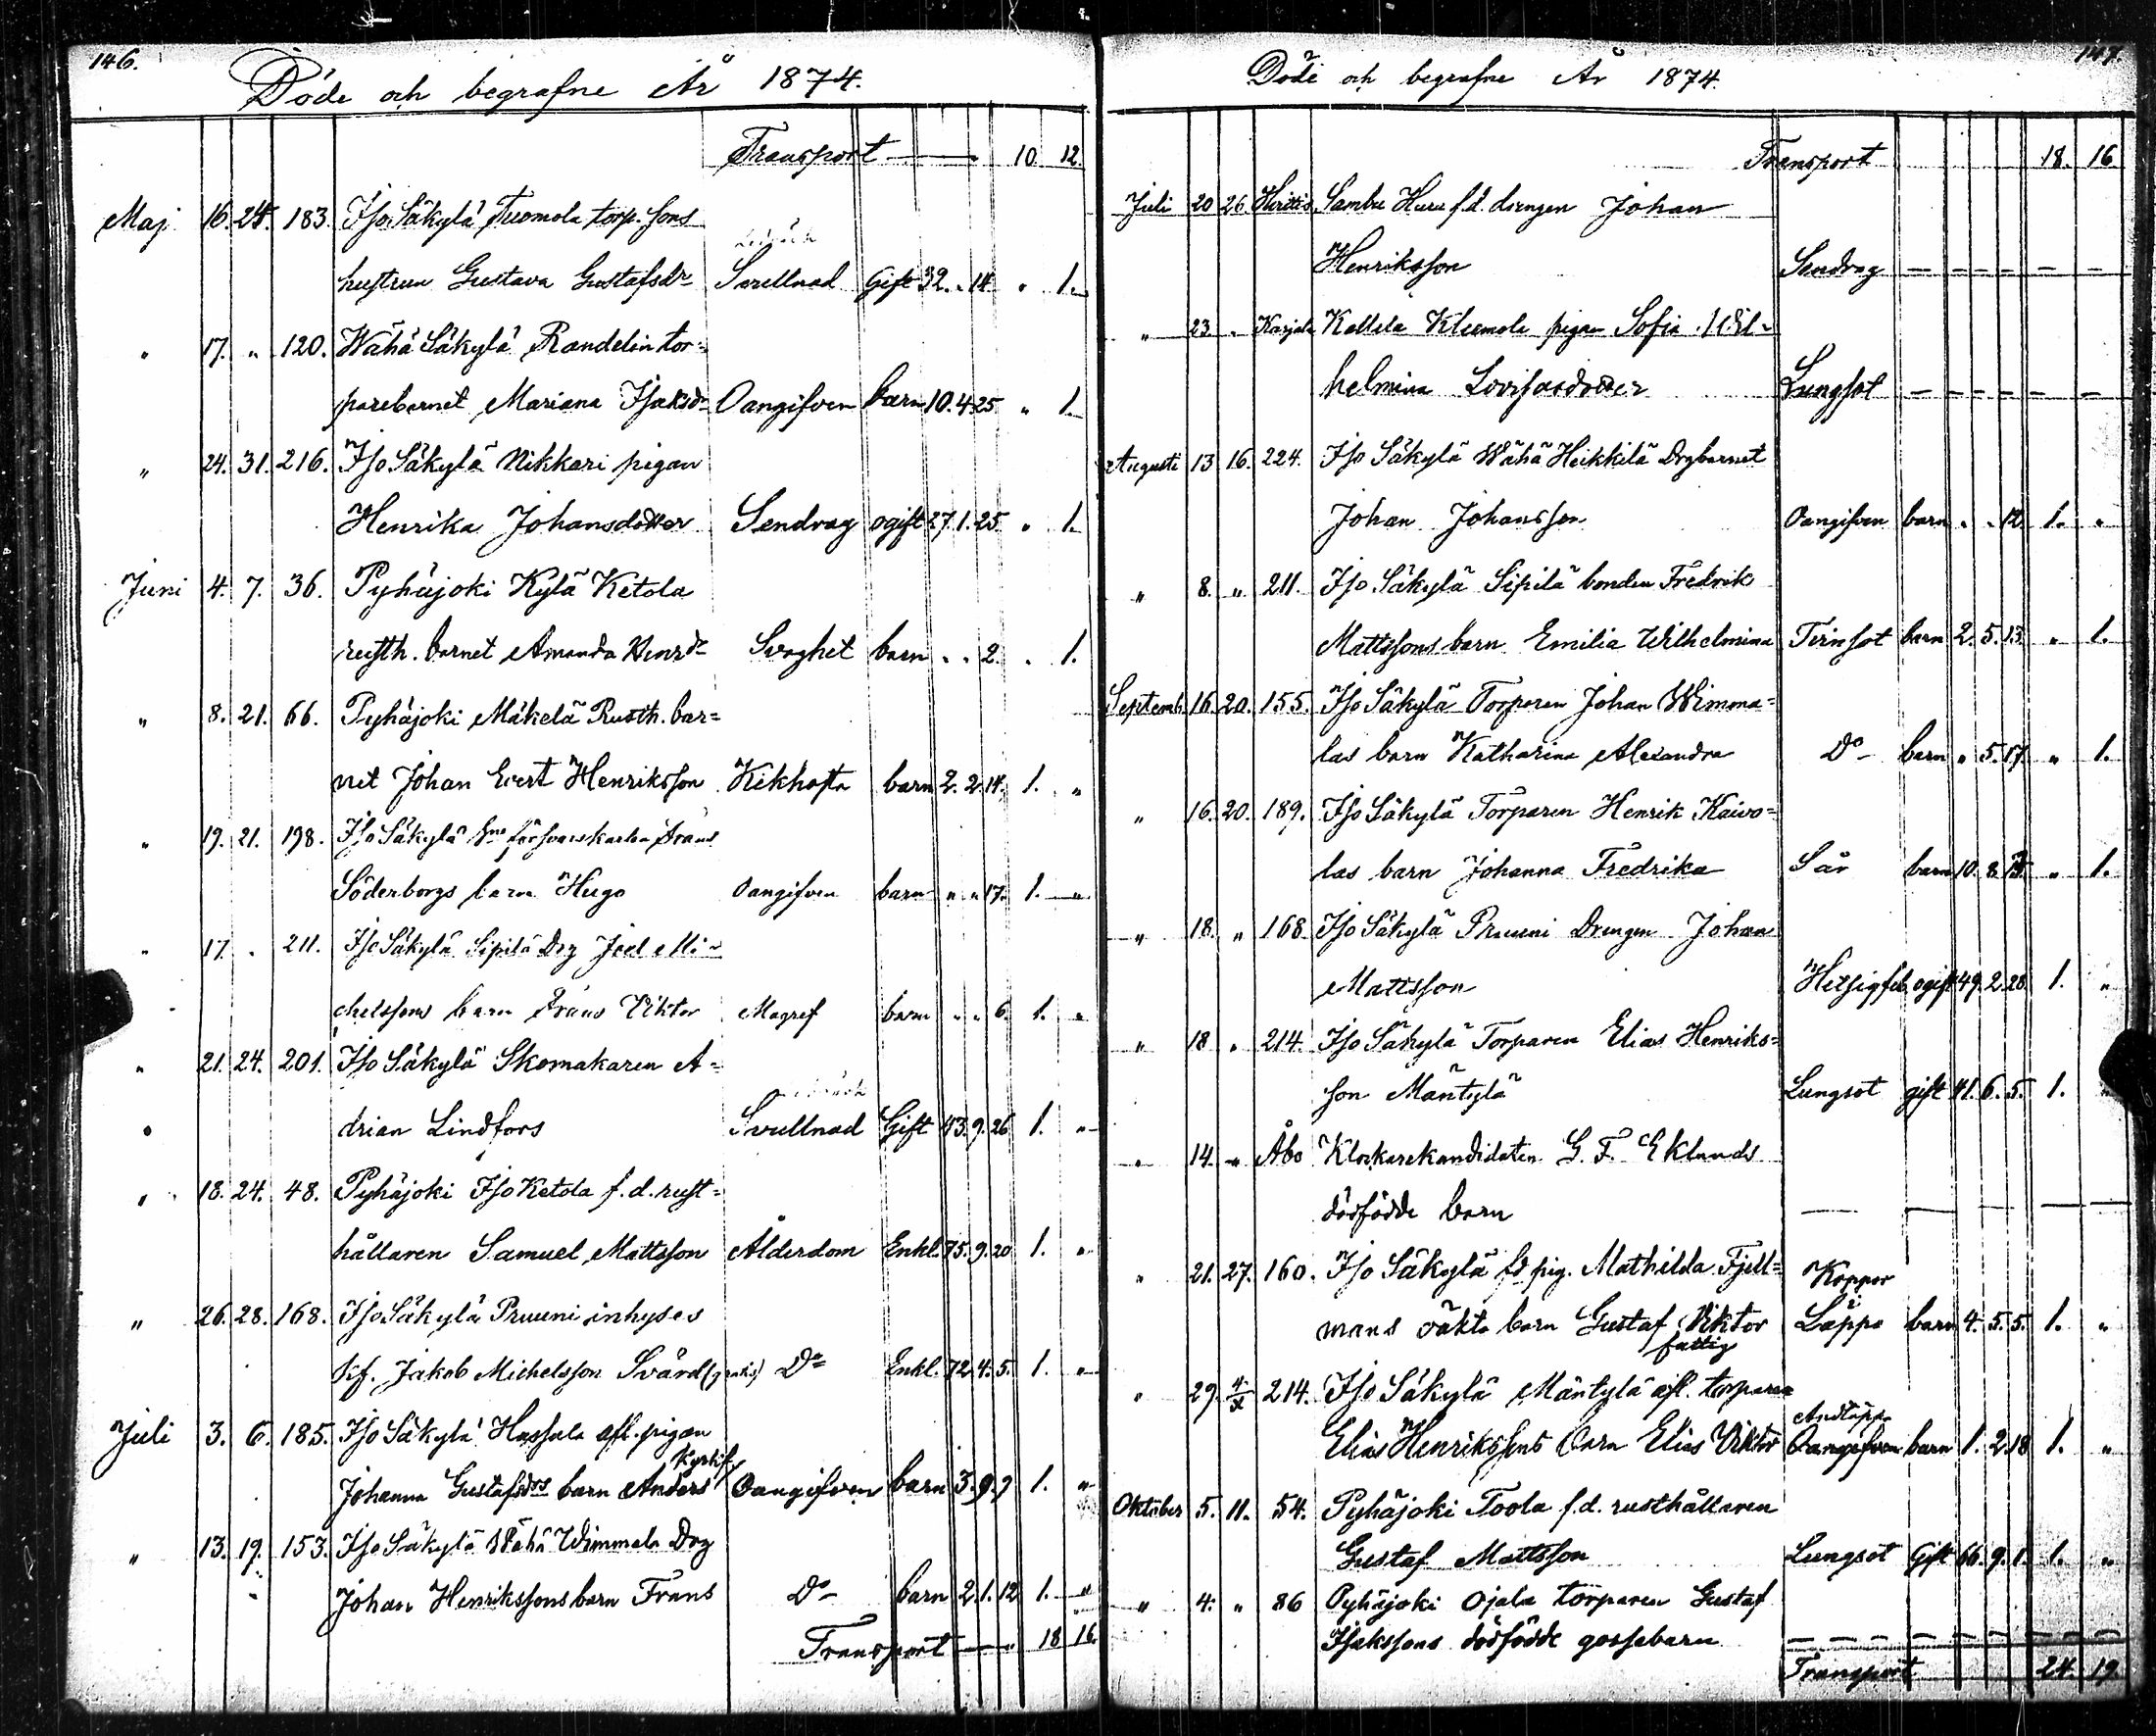 146.
Döde och begrafne År 1874.
Transport 10. 12.
Maj 16. 24. 183. Iso Säkylä Tuomola torp. sons
hustrun Gustava Gustafsdr Svullnad Gift 32. " 14 " 1.
" 17. " 120. Wähä Säkylä Randelin tor=
parebarnet Mariana Isaksdr Oangifven barn 10. 4. 25 " 1.
" 24. 31. 216. Iso Säkylä Nikkari pigan
Henrika Johansdotter Sendrag ogift 27. 1. 25. " 1.
Juni 4. 7. 36. Pyhäjoki Kylä Ketola
rusth. barnet Amanda Henrdr Svaghet barn " " 2. " 1.
" 8. 21. 66. Pyhäjoki Mäkelä Rusth. bar=
net Johan Evert Henriksson Kikhosta barn 2. 2. 14. 1. "
" 19. 21. 198. Iso Säkylä försvarskarlen Frans
Söderborgs barn Hugo Oangifven barn " " 17. 1. "
" 17. " 211. Iso Säkylä Sipilä Drg Joel Mi=
chelssons barn Frans Viktor Magref barn " " 6. 1. "
" 21. 24. 201. Iso Säkylä Skomakaren A=
drian Lindfors Svullnad Gift 43. 9. 26 1. "
" 18. 24. 48. Pyhäjoki Iso Ketola f. d. rust=
hållaren Samuel Mattsson Ålderdom Enkl. 75. 9. 20 1. "
" 26. 28. 168. Iso Säkylä Pruuni inhyses
Jakob Michelsson Svärd (gratis) Do Enkl. 72. 4. 5. 1. "
Juli 3. 6. 185. Iso Säkylä Hassala afl. pigan
Johanna Gustafsdrs barn Anders Oangifven barn 3. 9. 7 1. "
" 13. 19. 153. Iso Säkylä Wähä Wimmala Drg
Johan Henrikssons barn Frans Do barn 2. 1. 12 1. "
Transport 18 16.
147.
Döde och begrafne År 1874.
Transport 18. 16.
Juli 20 26 Sambu Huru f. d. drengen Johan
Henriksson Sendrag
" 23 " Karjala Kallela Kleemola pigan Sofia Wil=
helmina Lovisasdotter Lungsot
Augusti 13 16. 224. Iso Säkylä Wähä Heikkilä Drgbarnet
Johan Johansson Oangifven barn " " 12. 1. "
" 8. " 211. Iso Säkylä Sipilä bonden Fredrik
Mattssons barn Emilia Wilhelmina Tvinsot barn 2. 5. 13. " 1.
Septemb. 16. 20. 155. Iso Säkylä Torparen Johan Wimma=
las barn Katharina Alexandra Do barn " 5. 17. " 1.
" 16. 20. 189. Iso Säkylä Torparen Henrik Kaivo=
las barn Johanna Fredrika Sår barn 10. 8. " 1.
" 18. " 168 Iso Säkylä Pruuni Drengen Johan
Mattsson Hetsigfeb. ogift 49. 2. 28. 1. "
" 18 " 214. Iso Säkylä Torparen Elias Henriks=
son Mäntylä Lungsot gift 41. 6. 5. 1. "
" 14. " Åbo Klockarekandidaten G. F. Eklunds
dödfödde barn
" 21. 27. 160. Iso Säkylä fd pig. Mathilda Fjell= Koppor
mans oäkta barn Gustaf Viktor Läppo barn 4. 5. 5. 1. "
fattig
" 29. 4/X 214. Iso Säkylä Mäntylä afl. torparen
Andtäppa
Elias Henrikssons barn Elias Viktor Oangifven barn 1. 2. 18 1. "
Oktober 5. 11. 54. Pyhäjoki Toola f. d. rusthållaren
Gustaf Mattsson Lungsot Gift 66. 9. 1. 1. "
" 4. " 86 Pyhäjoki Ojala torparen Gustaf
Isakssons dödfödde gossebarn
Transport 24. 19.